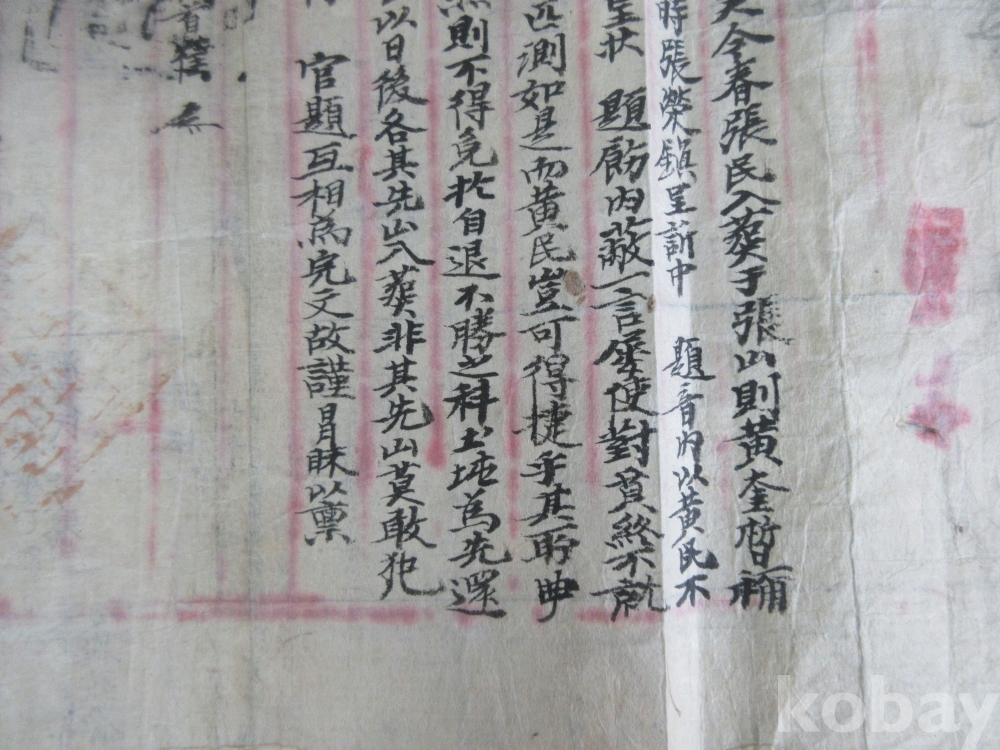 今春張民入葬于張山則黃奎晳補
時張榮鎭呈訴中 題音內以黃民不
呈狀 題飭內蔽一言屢使對質終不就
匹測如是而黃民豈可得捷乎其所
則不得免於自退不勝之科土地為先還
以日後各其先山入葬非其先山莫敢犯
官題互相為完文故謹冒昧以稟
kobay